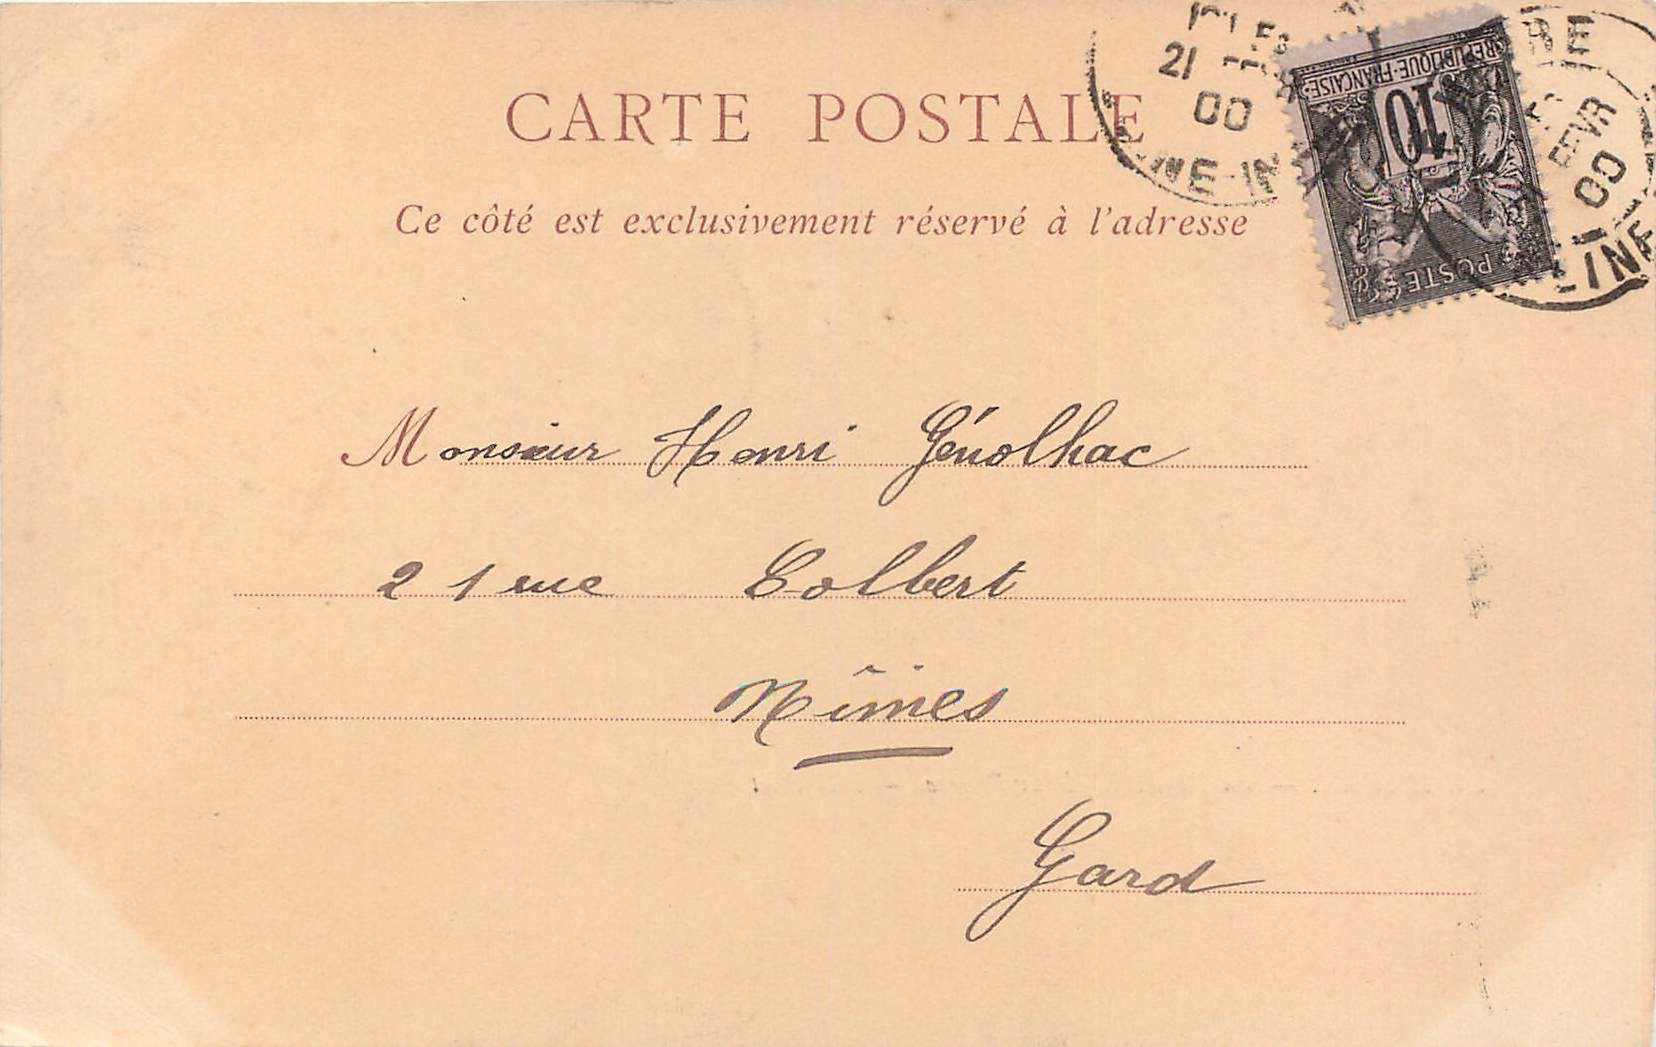 CARTE POSTALE
Ce côté est exclusivement réservé à l'adresse
21
00
RÉPUBLIQUE-FRANÇAISE
10
POSTES
FEVR
00
Monsieur Henri Génolhac
21 rue Colbert
Nîmes
Gard